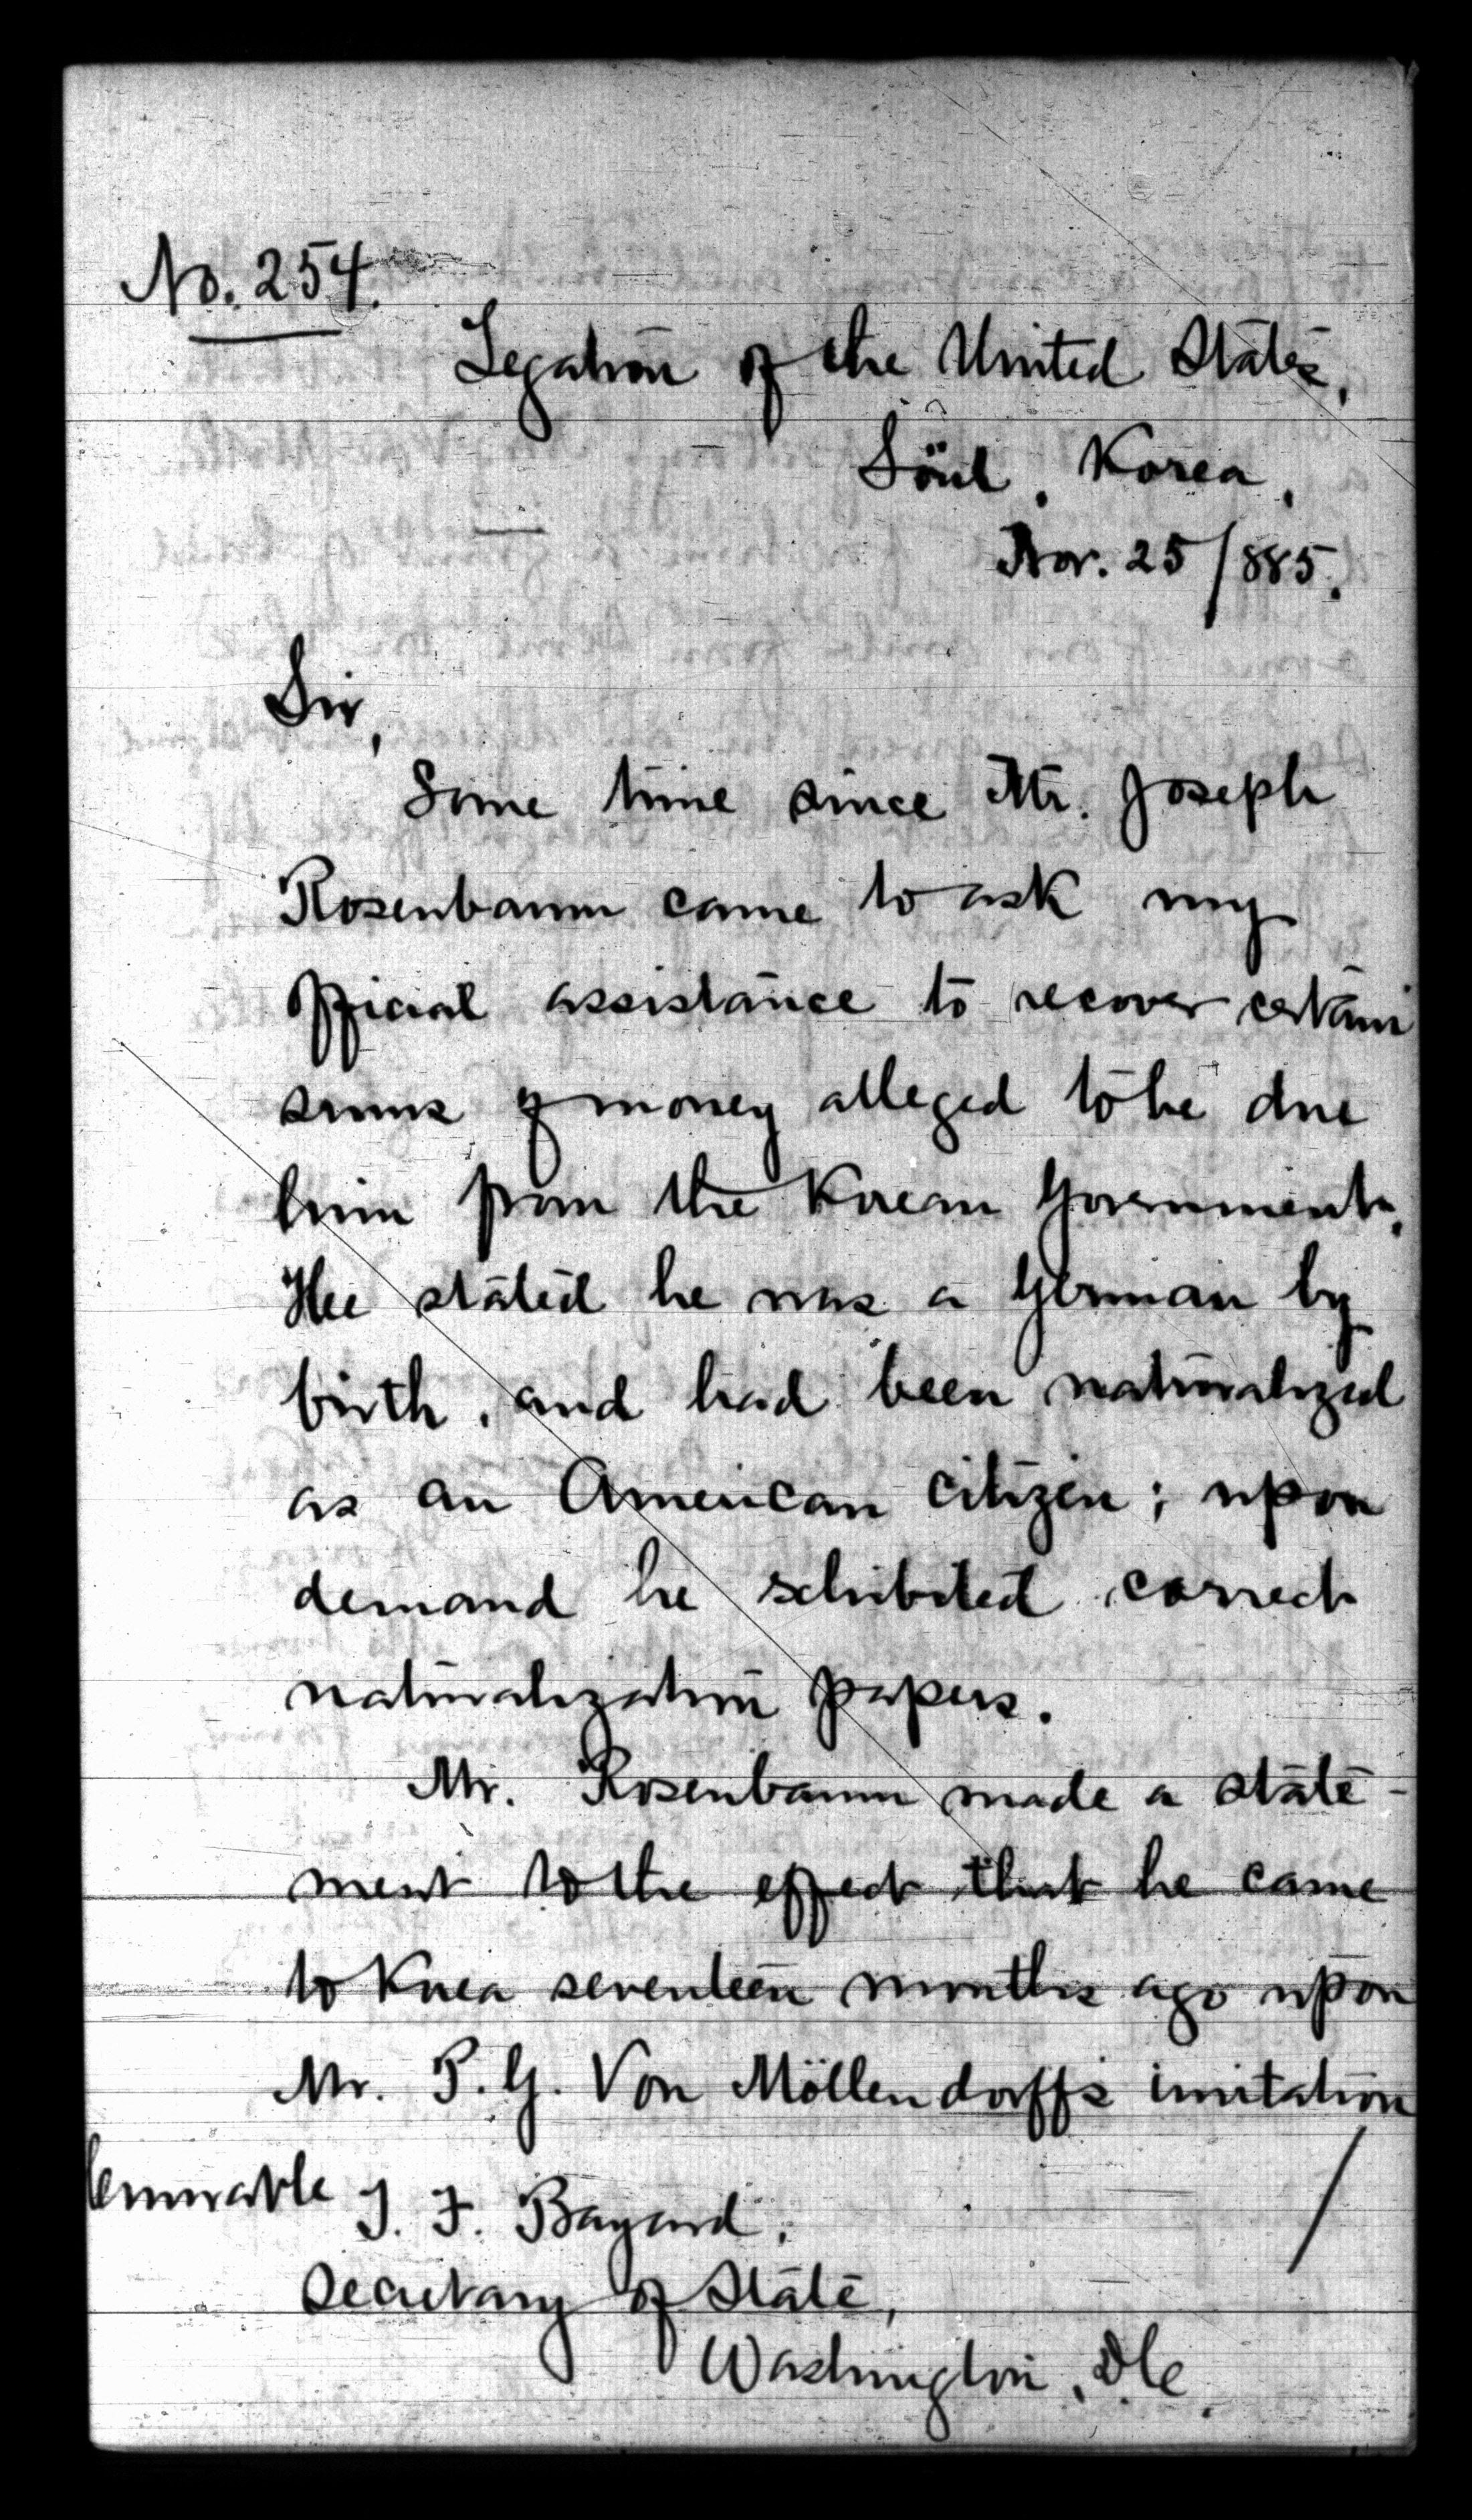 No. 254.
Legation of the United States,
Söul, Korea,
Nov. 25/885.
Sir,
Some time since Mr. Joseph
Rosenbaum came to ask my
official assistance to recover certain
sums of money alleged to be due
him from the Korean Government.
He stated he was a German by
birth, and had been naturalized
as an American citizen; upon
demand he exhibited correct
naturalization papers.
Mr. Rosenbaum made a state-
ment to the effect that he came
to Korea seventeen months ago upon
Mr. P. G. Von Möllendorff's invitation
/
Honorable T. F. Bayard,
Secretary of State,
Washington, D.C.